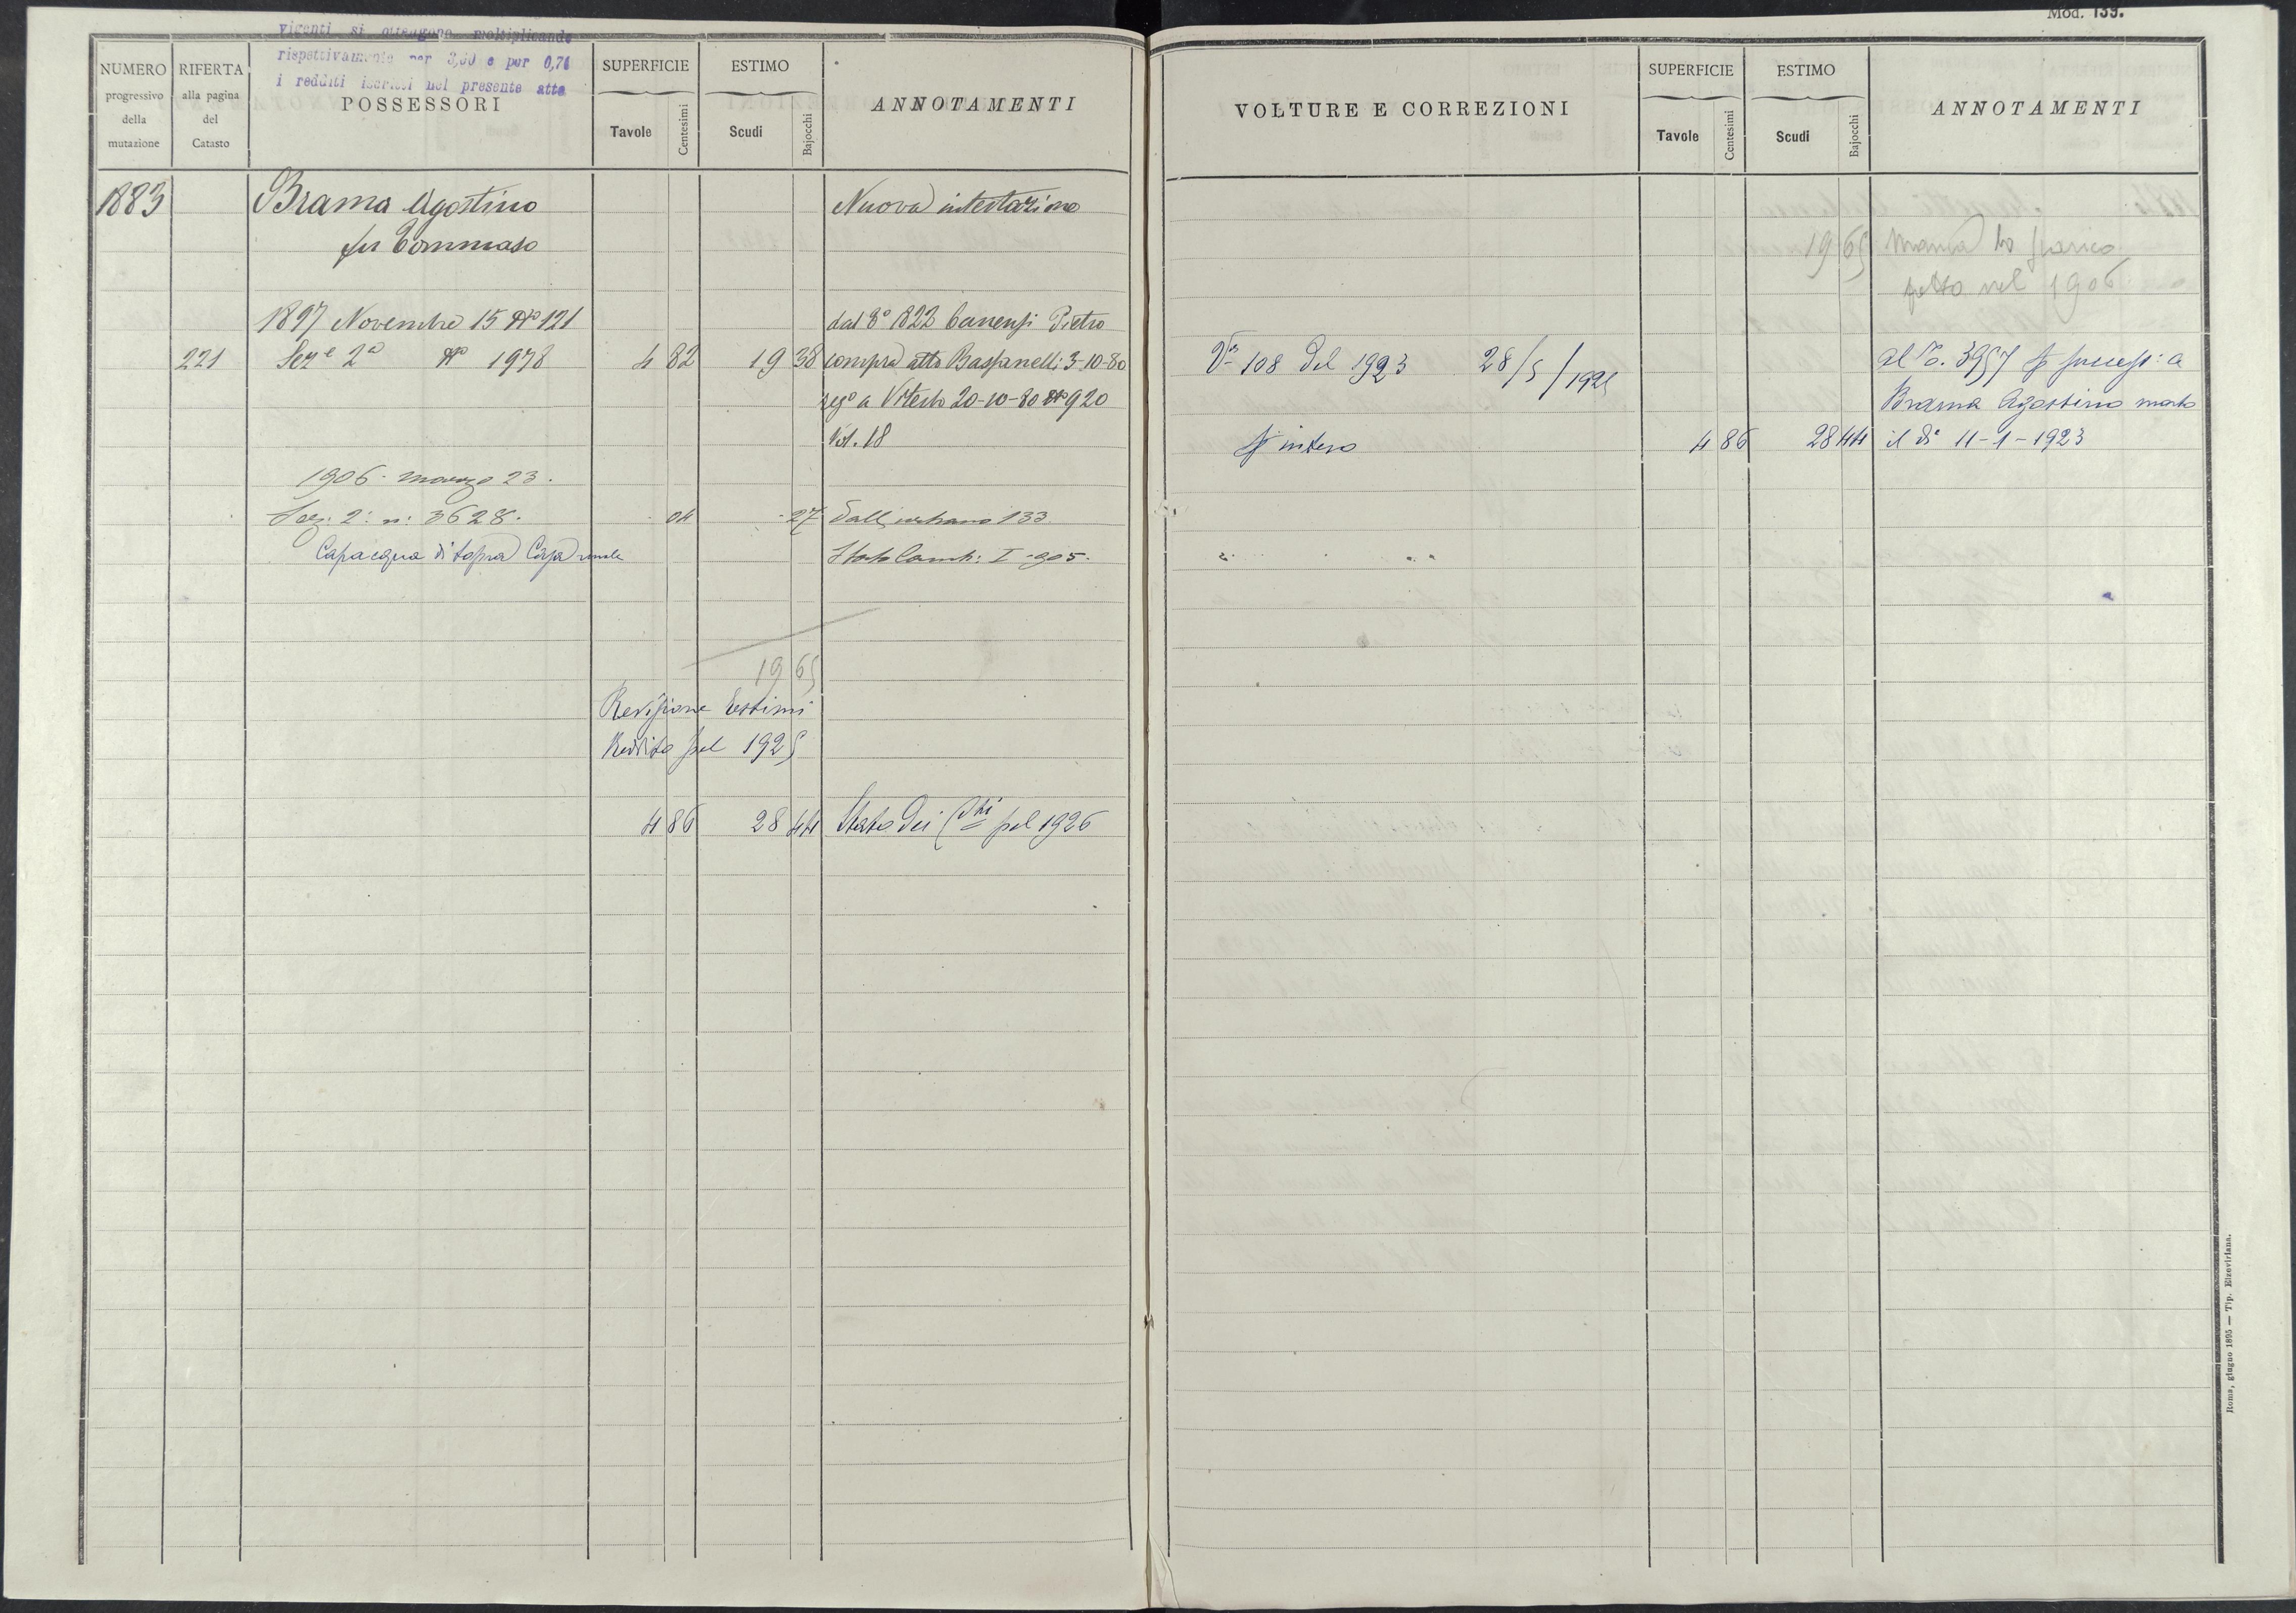 Mod. 139.
vigenti si ottengono moltiplicando
rispettivamente per 3,50 e per 0,74
i redditi iscritti nel presente atto
NUMERO progressivo della mutazione
RIFERTA alla pagina del Catasto
POSSESSORI
SUPERFICIE Tavole Centesimi
ESTIMO Scudi Bajocchi
ANNOTAMENTI
1883 Brama Agostino Nuova intestazione
fu Tommaso
1897 Novembre 15 N° 121 dal 8° 1822 Canensi Pietro
221 Sez.e 2a N° 1978 4 82 19 38 compra atto Baspanelli 3-10-80
reg° a Viterbo 20-10-80 N° 920
Vol. 18
1906 marzo 23.
Sez. 2: n: 3628. 04 27 Dall urbano 133
Capacqua di sopra Casa rurale Stato Camb: I-905.
19 65
Revisione Estimi
Reddito pel 1925
4 86 28 44 Stato dei pel 1926
VOLTURE E CORREZIONI
SUPERFICIE Tavole Centesimi
ESTIMO Scudi Bajocchi
ANNOTAMENTI
19 65 Manca lo scarico
fatto nel 1906
Va 108 del 1923 28/5/1925 al P. 3957 success: a
Brama Agostino morto
intero 4 86 28 44 il dì 11-1-1923
Roma, giugno 1895 — Tip. Elzeviriana.